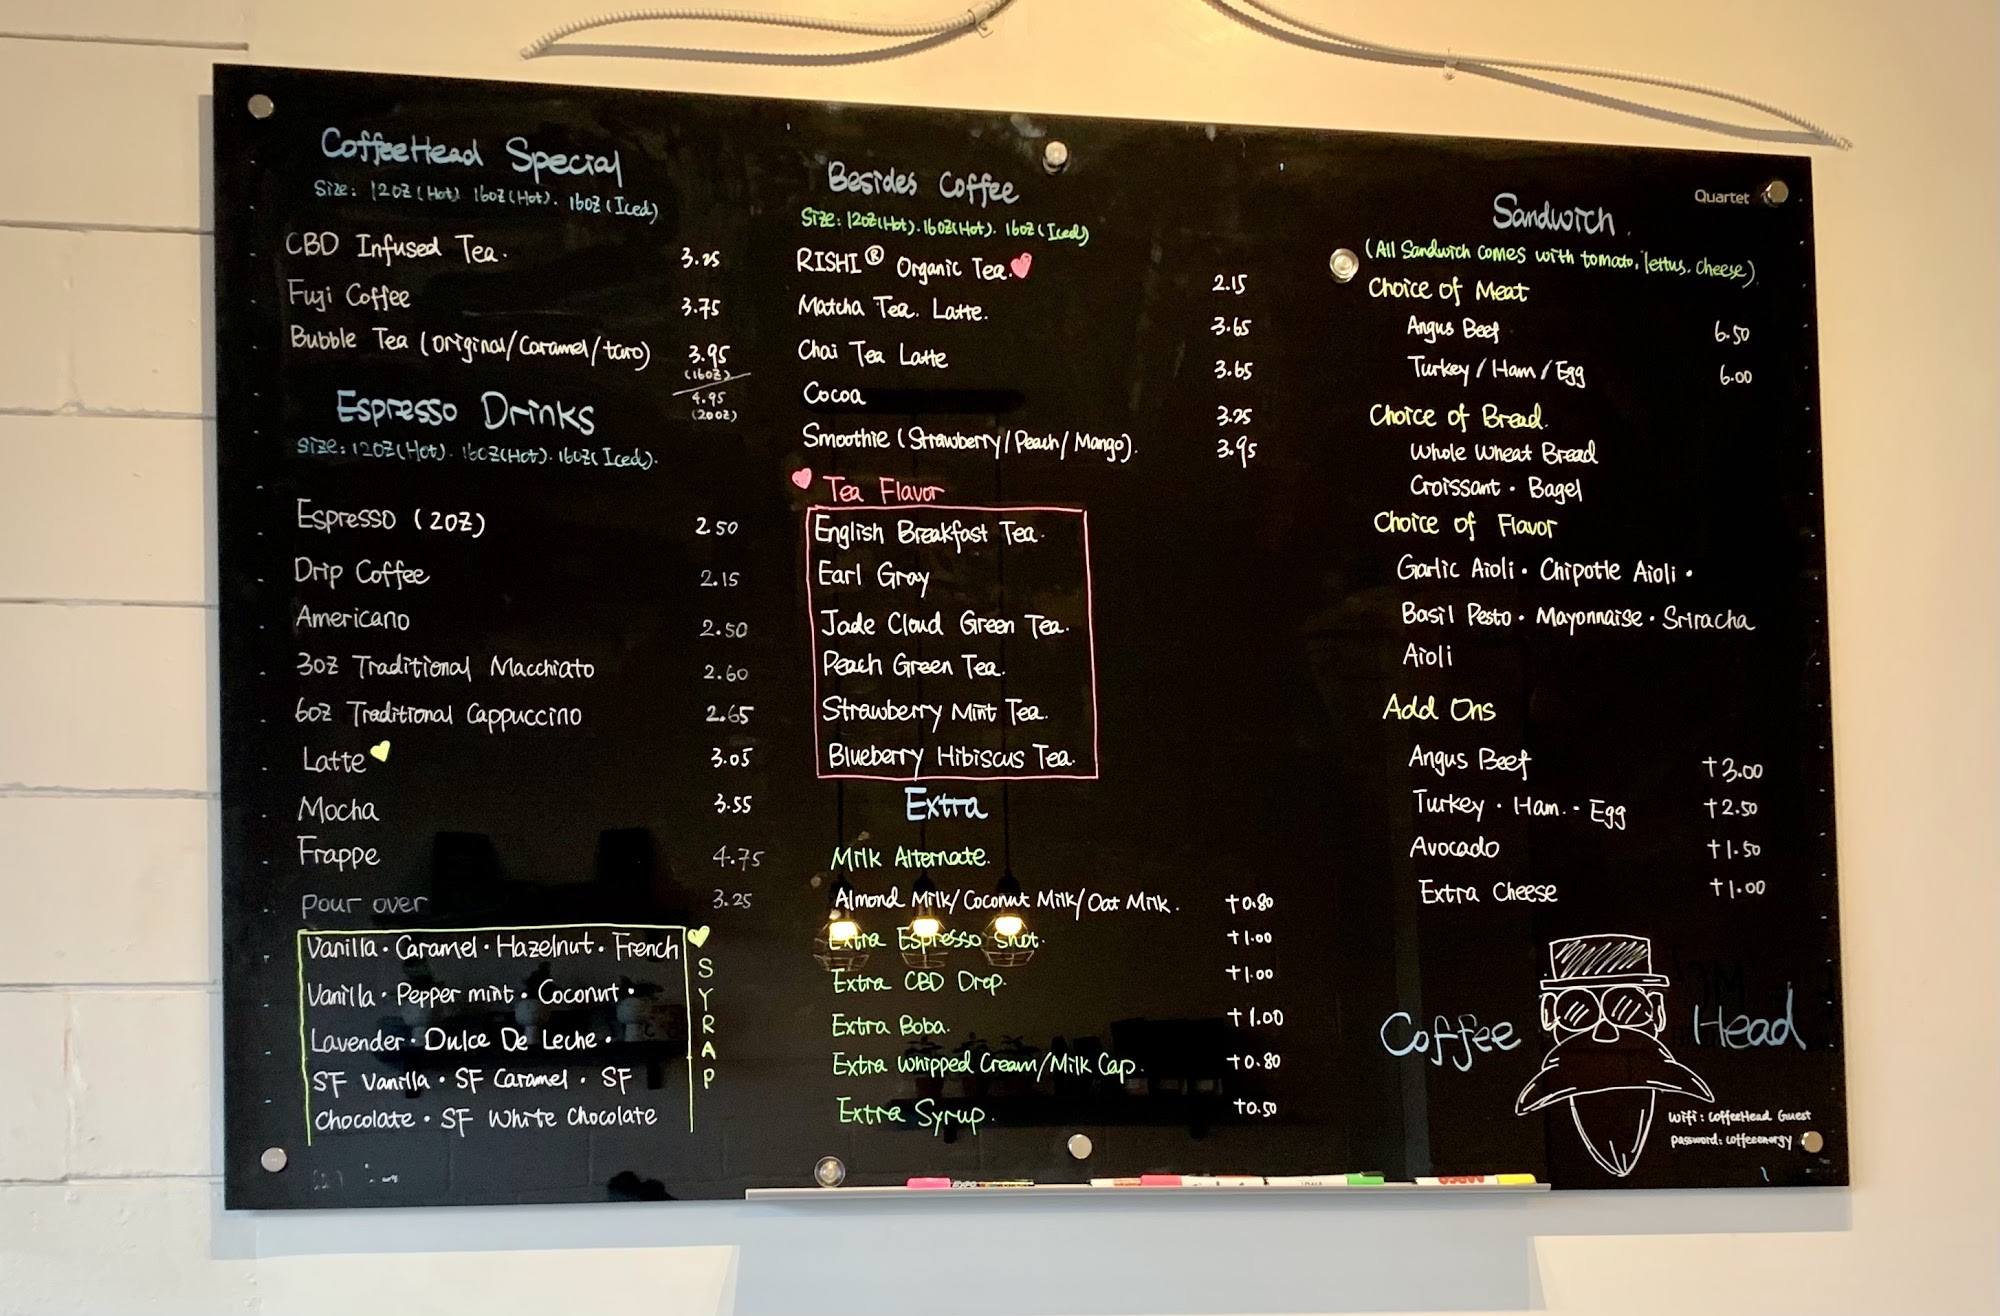 CoffeeHead Special
Size: 12oz(Hot). 16oz(Hot). 16oz(Iced)
CBD Infused Tea. 3.25
Fuji Coffee 3.75
Bubble Tea (original/caramel/taro) 3.95
(16oz)
4.95
(20oz)
Espresso Drinks
Size: 12oz(Hot). 16oz(Hot). 16oz(Iced).
Espresso (2oz) 2.50
Drip Coffee 2.15
Americano 2.50
3oz Traditional Macchiato 2.60
6oz Traditional Cappuccino 2.65
Latte 3.05
Mocha 3.55
Frappe 4.75
pour over 3.25
Vanilla · Caramel · Hazelnut · French
Vanilla · Pepper mint · Coconut ·
Lavender · Dulce De Leche ·
SF Vanilla · SF Caramel · SF
Chocolate · SF White Chocolate
SYRAP
Besides Coffee
Size: 12oz(Hot). 16oz(Hot). 16oz(Iced)
RISHI® Organic Tea. 2.15
Matcha Tea. Latte. 3.65
Chai Tea Latte 3.65
Cocoa 3.25
Smoothie (Strawberry/Peach/Mango). 3.95
Tea Flavor
English Breakfast Tea.
Earl Gray
Jade Cloud Green Tea.
Peach Green Tea.
Strawberry Mint Tea.
Blueberry Hibiscus Tea.
Extra
Milk Alternate.
Almond Milk/Coconut Milk/Oat Milk. +0.80
Extra Espresso Shot. +1.00
Extra CBD Drop. +1.00
Extra Boba. +1.00
Extra Whipped Cream/Milk Cap. +0.80
Extra Syrup. +0.50
Quartet
Sandwich
(All Sandwich comes with tomato, lettus. cheese)
Choice of Meat
Angus Beef 6.50
Turkey/Ham/Egg 6.00
Choice of Bread.
Whole Wheat Bread
Croissant · Bagel
Choice of Flavor
Garlic Aioli · Chipotle Aioli ·
Basil Pesto · Mayonnaise · Sriracha
Aioli
Add Ons
Angus Beef +3.00
Turkey · Ham · Egg +2.50
Avocado +1.50
Extra Cheese +1.00
Coffee Head
Wifi: CoffeeHead Guest
password: coffeeenergy